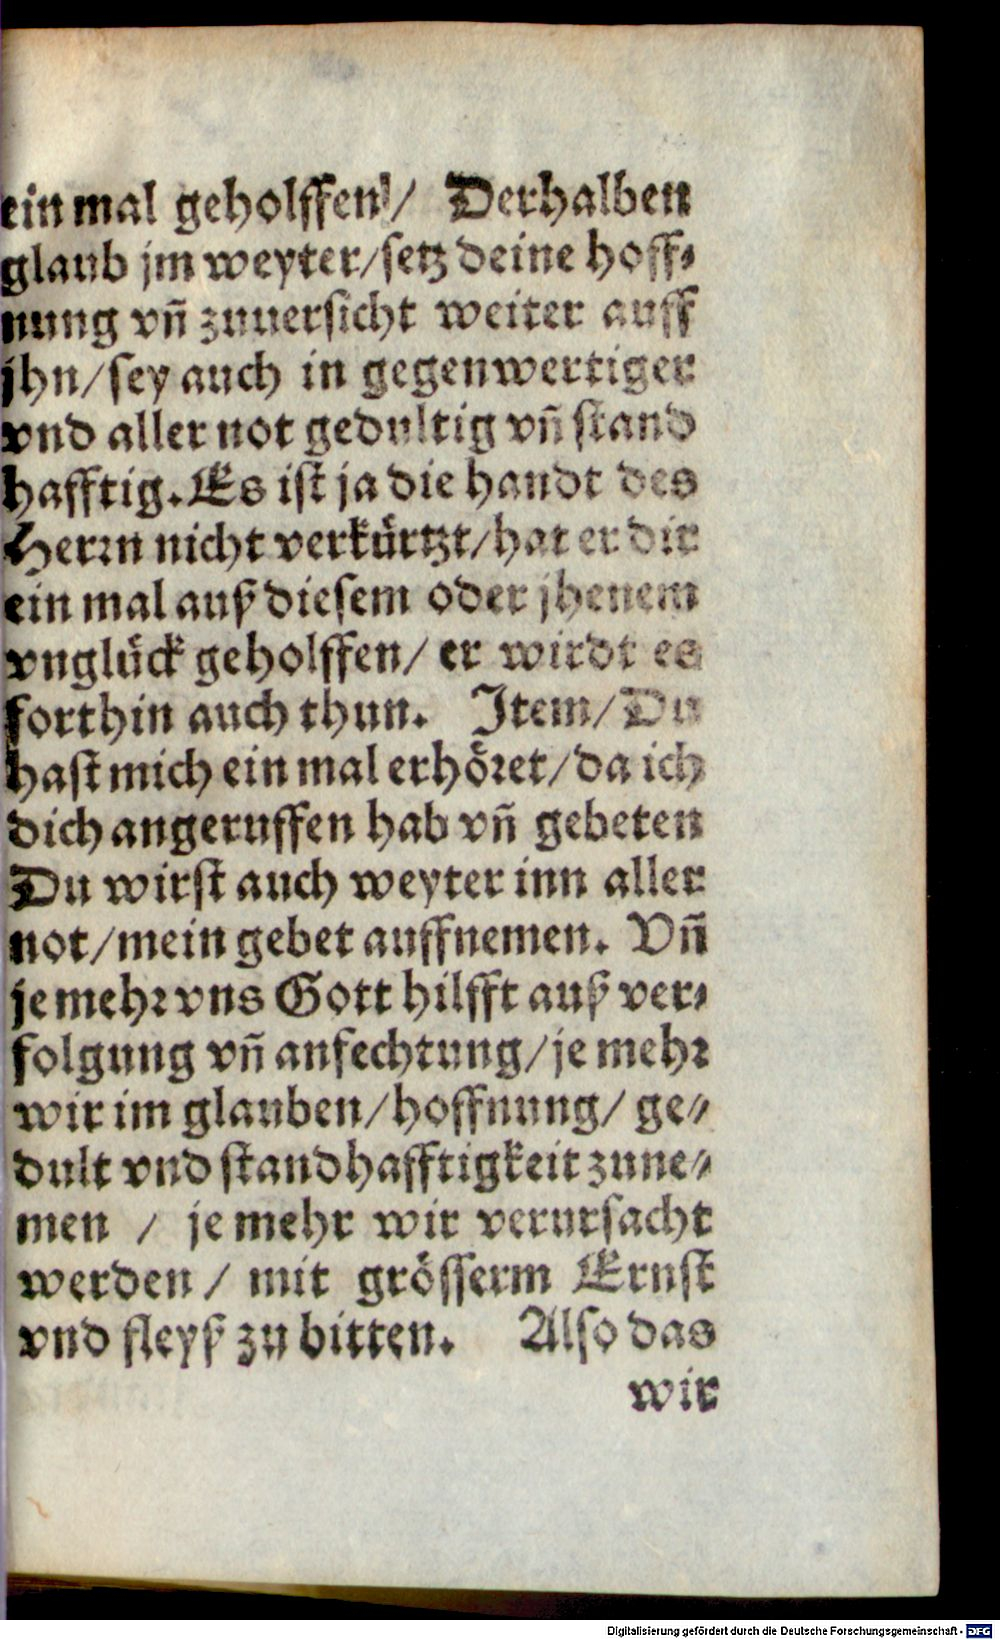 ein mal geholffen / Derhalben
glaub jm weyter/setz deine hoff⸗
nung vñ zuuersicht weiter auff
jhn/sey auch in gegenwertiger
vnd aller not gedultig vñ stand
hafftig. Es ist ja die handt des
Herꝛn nicht verkürtzt/hat er dir
ein mal auß diesem oder jhenem
vnglück geholffen/ er wirdt es
forthin auch thun. Item/Du
hast mich ein mal erhöꝛet/da ich
dich angeruffen hab vñ gebeten
Du wirst auch weyter inn aller
not/mein gebet auffnemen. Vñ
je mehꝛ vns Gott hilfft auß ver⸗
folgung vñ anfechtung/je mehꝛ
wir im glauben/hoffnung/ ge⸗
dult vnd standhafftigkeit zune⸗
men / je mehr wir verursacht
werden/ mit grösserm Ernst
vnd fleyß zu bitten. Also das
wir
Digitalisierung gefördert durch die Deutsche Forschungsgemeinschaft - DFG